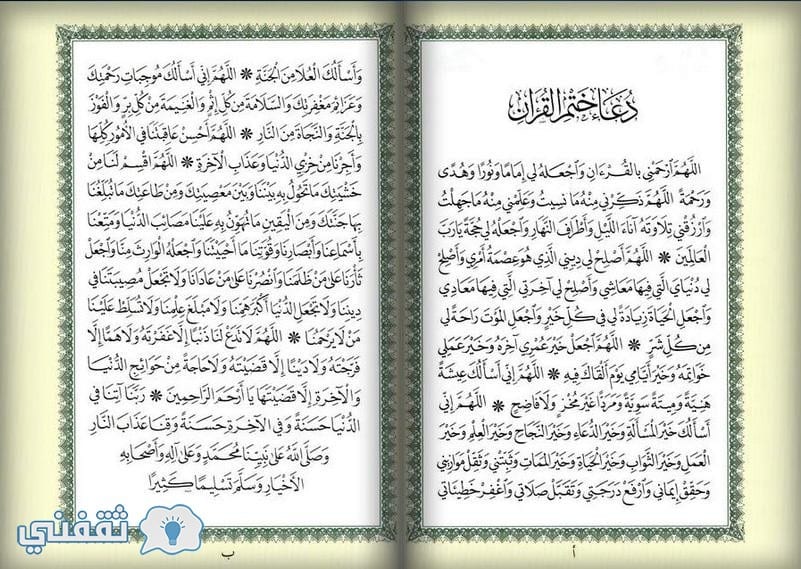 دُعَاءُ خَتْمِ القُرْآنِ
اللَّهُمَّ ٱرْحَمْنِي بالقُرْءَانِ وَٱجْعَلهُ لِي إِمَامًا وَنُورًا وَهُدًى
وَرَحْمَةً اللَّهُمَّ ذَكِّرْنِي مِنْهُ مَا نَسِيتُ وَعَلِّمْنِي مِنْهُ مَا جَهِلْتُ
وَٱرْزُقْنِي تِلَاوَتَهُ آنَاءَ اللَّيْلِ وَأَطْرَافَ النَّهَارِ وَٱجْعَلْهُ لِي حُجَّةً يَارَبَّ
العَالَمِينَ * اللَّهُمَّ أَصْلِحْ لِي دِينِي الَّذِي هُوَ عِصْمَةُ أَمْرِي وَأَصْلِحْ
لِي دُنْيَايَ الَّتِي فِيهَا مَعَاشِي وَأَصْلِحْ لِي آخِرَتِي الَّتِي فِيهَا مَعَادِي
وَٱجْعَلِ الحَيَاةَ زِيَادَةً لِي فِي كُلِّ خَيْرٍ وَٱجْعَلِ المَوْتَ رَاحَةً لِي
مِن كُلِّ شَرٍّ * اللَّهُمَّ ٱجْعَلْ خَيْرَ عُمْرِي آخِرَهُ وَخَيْرَ عَمَلِي
خَوَاتِمَهُ وَخَيْرَ أَيَّامِي يَوْمَ أَلْقَاكَ فِيهِ * اللَّهُمَّ إِنِّي أَسْأَلُكَ عِيشَةً
هَنِيَّةً وَمِيتَةً سَوِيَّةً وَمَرَدًّا غَيْرَ مُخْزٍ وَلَا فَاضِحٍ * اللَّهُمَّ إِنِّي
أَسْأَلُكَ خَيْرَ المَسْأَلَةِ وَخَيْرَ الدُّعَاءِ وَخَيْرَ النَّجَاحِ وَخَيْرَ العِلْمِ وَخَيْرَ
العَمَلِ وَخَيْرَ الثَّوَابِ وَخَيْرَ الحَيَاةِ وَخَيْرَ المَمَاتِ وَثَبِّتْنِي وَثَقِّلْ مَوَازِينِي
وَحَقِّقْ إِيمَانِي وَٱرْفَعْ دَرَجَتِي وَتَقَبَّلْ صَلَاتِي وَٱغْفِرْ خَطِيئَاتِي
أ
وَأَسْأَلُكَ العُلَا مِنَ الجَنَّةِ * اللَّهُمَّ إِنِّي أَسْأَلُكَ مُوجِبَاتِ رَحْمَتِكَ
وَعَزَائِمَ مَغْفِرَتِكَ وَالسَّلَامَةَ مِن كُلِّ إِثْمٍ وَالغَنِيمَةَ مِن كُلِّ بِرٍّ وَالفَوْزَ
بِالجَنَّةِ وَالنَّجَاةَ مِنَ النَّارِ * اللَّهُمَّ أَحْسِنْ عَاقِبَتَنَا فِي الأُمُورِ كُلِّهَا
وَأَجِرْنَا مِنْ خِزْيِ الدُّنْيَا وَعَذَابِ الآخِرَةِ * اللَّهُمَّ اقْسِمْ لَنَا مِنْ
خَشْيَتِكَ مَا تَحُولُ بِهِ بَيْنَنَا وَبَيْنَ مَعْصِيَتِكَ وَمِن طَاعَتِكَ مَا تُبَلِّغُنَا
بِهَا جَنَّتَكَ وَمِنَ اليَقِينِ مَا تُهَوِّنُ بِهِ عَلَيْنَا مَصَائِبَ الدُّنْيَا وَمَتِّعْنَا
بِأَسْمَاعِنَا وَأَبْصَارِنَا وَقُوَّتِنَا مَا أَحْيَيْتَنَا وَٱجْعَلْهُ الوَارِثَ مِنَّا وَٱجْعَلْ
ثَأْرَنَا عَلَى مَنْ ظَلَمَنَا وَٱنْصُرْنَا عَلَى مَنْ عَادَانَا وَلَا تَجْعَلْ مُصِيبَتَنَا فِي
دِينِنَا وَلَا تَجْعَلِ الدُّنْيَا أَكْبَرَ هَمِّنَا وَلَا مَبْلَغَ عِلْمِنَا وَلَا تُسَلِّطْ عَلَيْنَا
مَن لَا يَرْحَمُنَا * اللَّهُمَّ لَا تَدَعْ لَنَا ذَنْبًا إِلَّا غَفَرْتَهُ وَلَا هَمًّا إِلَّا
فَرَّجْتَهُ وَلَا دَيْنًا إِلَّا قَضَيْتَهُ وَلَا حَاجَةً مِنْ حَوَائِجِ الدُّنْيَا
وَالآخِرَةِ إِلَّا قَضَيْتَهَا يَا أَرْحَمَ الرَّاحِمِينَ * رَبَّنَا آتِنَا فِي
الدُّنْيَا حَسَنَةً وَفِي الآخِرَةِ حَسَنَةً وَقِنَا عَذَابَ النَّارِ
وَصَلَّى اللهُ عَلَى نَبِيِّنَا مُحَمَّدٍ وَعَلَى آلِهِ وَأَصْحَابِهِ
الأَخْيَارِ وَسَلَّمَ تَسْلِيمًا كَثِيرًا
ب
ثقفني